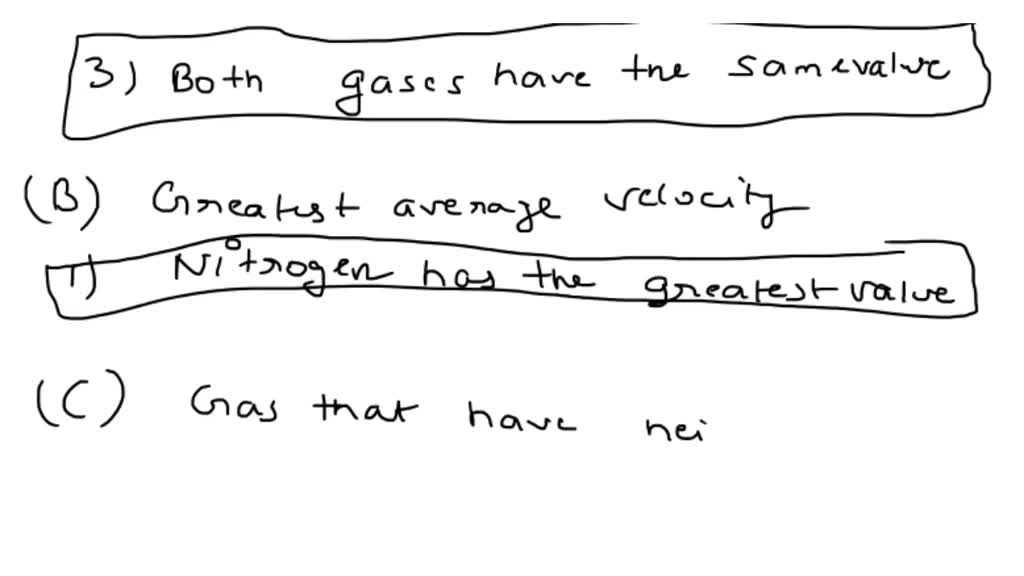 3) Both gases have the same value
(B) Greatest average velocity
1) Nitrogen has the greatest value
(C) Gas that have hei